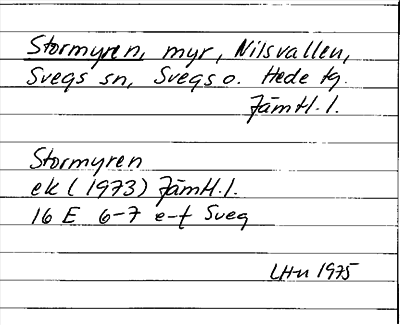 Stormyren, myr, Nilsvallen,
Svegs sn, Svegs o. Hede tg.
Jämtl. l.
Stormyren
ek (1973) Jämtl. l.
16 E 6-7 e-f Sveg
LHn 1975